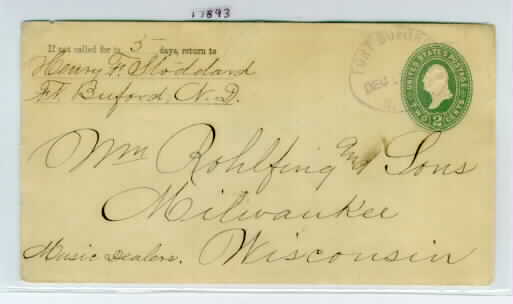 1893
If not called for in 5 days, return to
Henry F. Stoddard
Ft. Buford, N.D.
FORT BUFORD
DEC
UNITED STATES POSTAGE
TWO 2 CENTS
Wm Rohlfing and Sons
Milwaukee
Music Dealers. Wisconsin